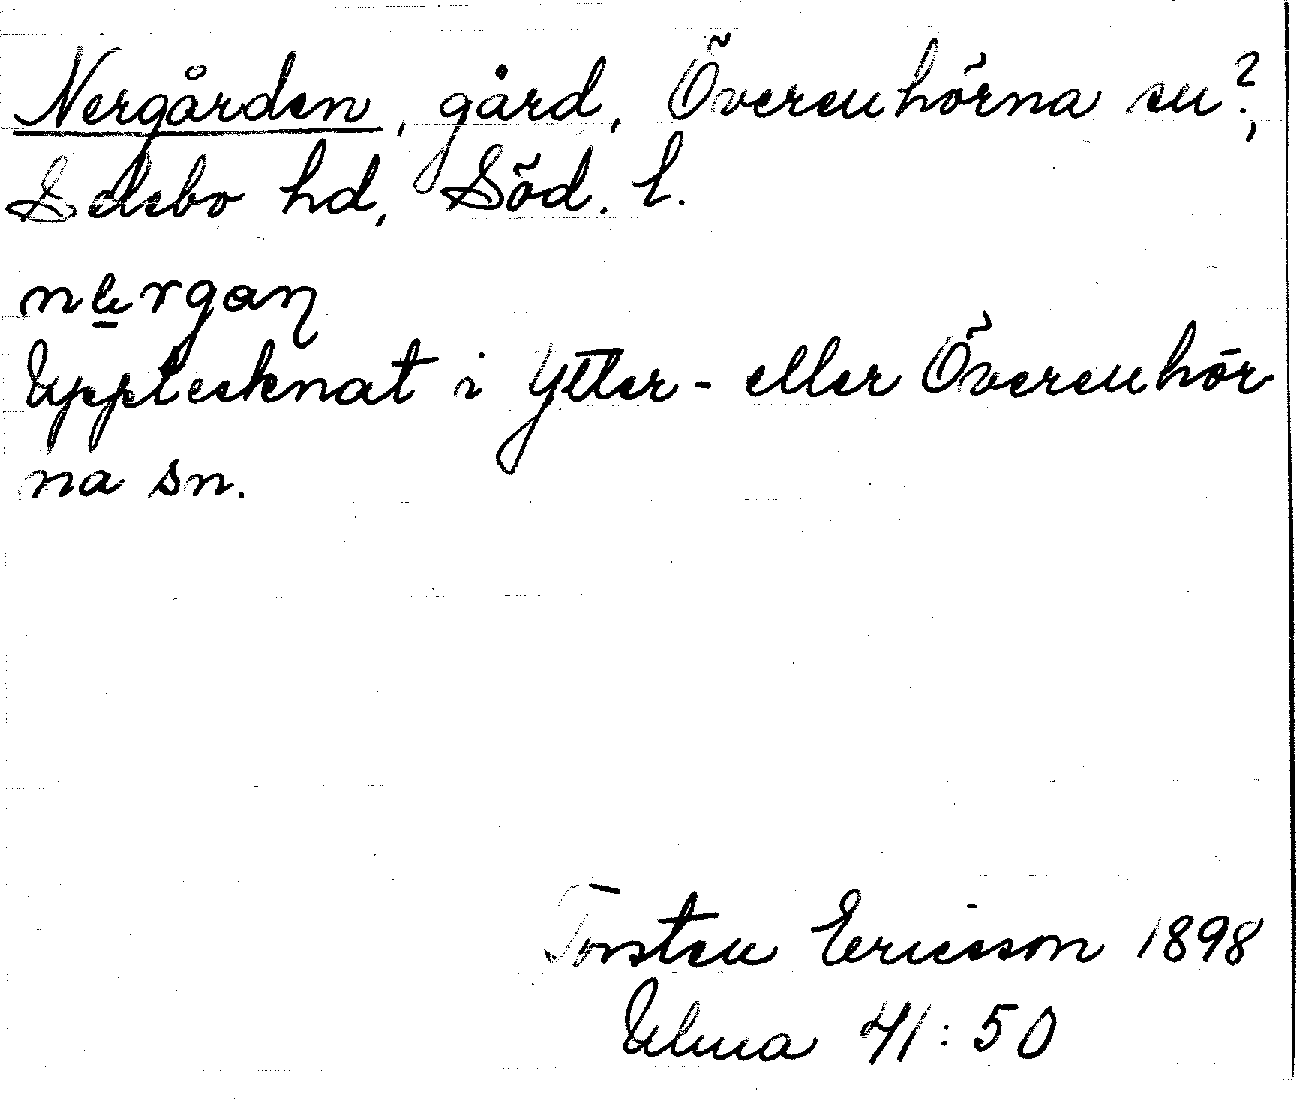 Nergården, gård, Överenhörna sn?,
Selebo hd, Söd. l.
Upptecknat i Ytter- eller Överenhör
na sn.
Torsten Ericsson 1898
Ulma 41:50